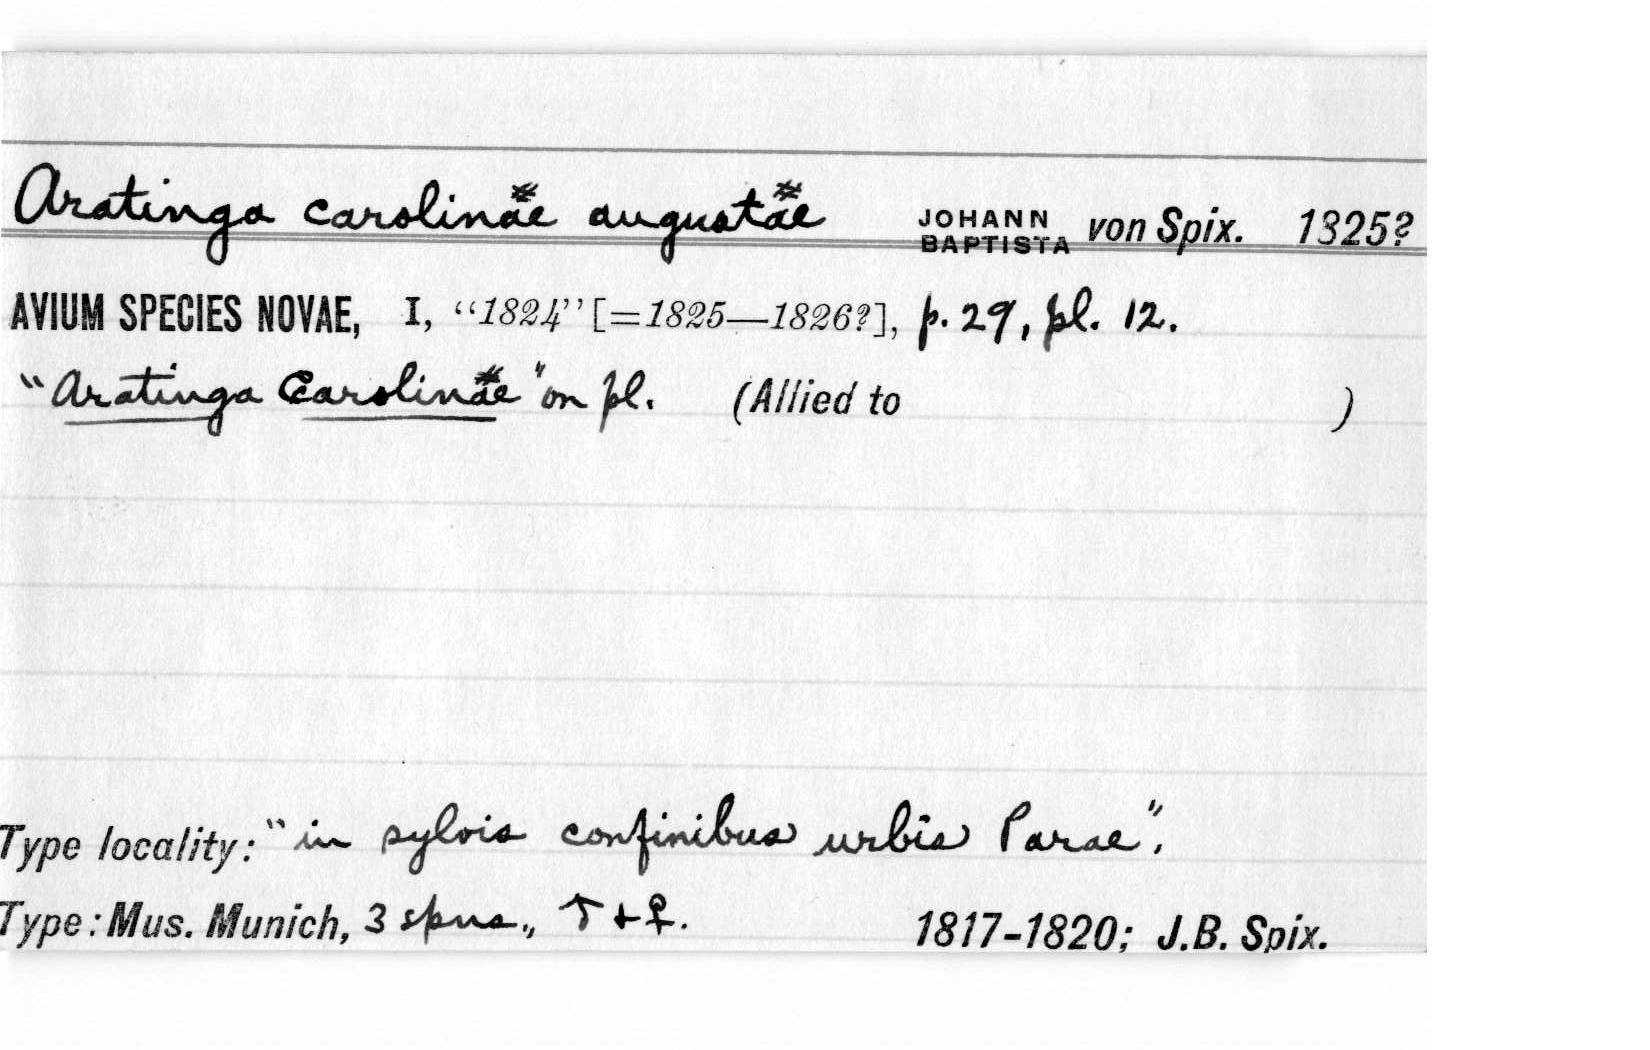 Aratinga carolinæ augustæ JOHANN BAPTISTA von Spix. 1825?
AVIUM SPECIES NOVAE, I, “1824” [=1825—1826?], p. 29, pl. 12.
"Aratinga Carolinæ" on pl. (Allied to )
Type locality: "in sylvis confinibus urbis Parae".
Type: Mus. Munich, 3 spns., ♂ + ♀.
1817-1820; J.B. Spix.